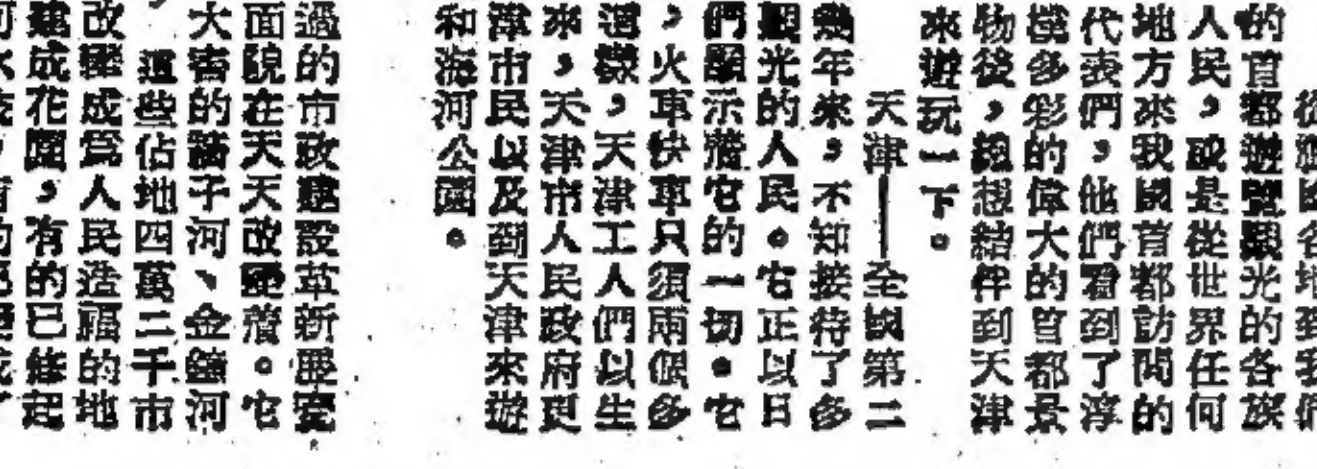 從祖國各地到我們
的首都遊覽觀光的各族
人民，或是從世界任何
地方來我國首都訪問的
代表們，他們看到了淳
樸多彩的偉大的首都景
物後，總想結伴到天津
來遊玩一下。
天津——全國第二
幾年來，不知接待了多
觀光的人民。它正以日
們顯示著它的一切。它
，火車快車只須兩個多
這機，天津工人們以生
來，天津市人民政府更
津市民以及到天津來遊
和海河公園。
過的市政建設革新歷
面貌在天天改變著。它
大害的牆子河、金鐘河
，這些佔地四萬二千市
改變成為人民造福的地
建成花園，有的已修起